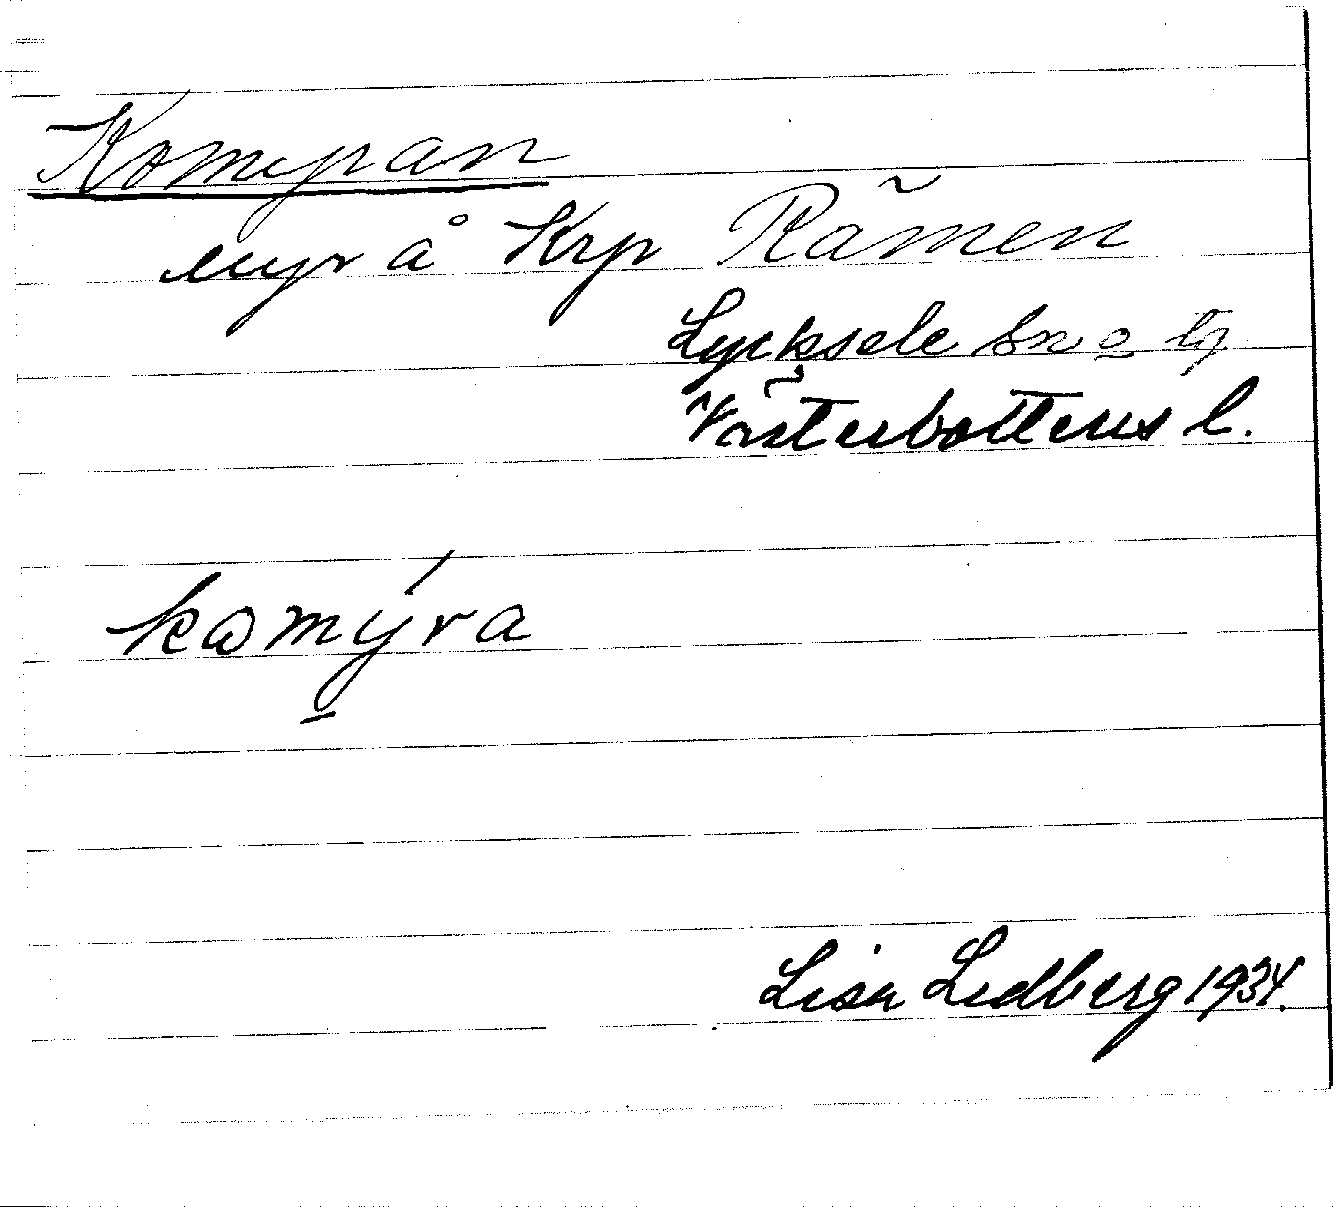 Komyran
myr å Krp Råmen
Lycksele sn o lg
Västerbottens l.
komýra
Lisa Lidberg 1934.